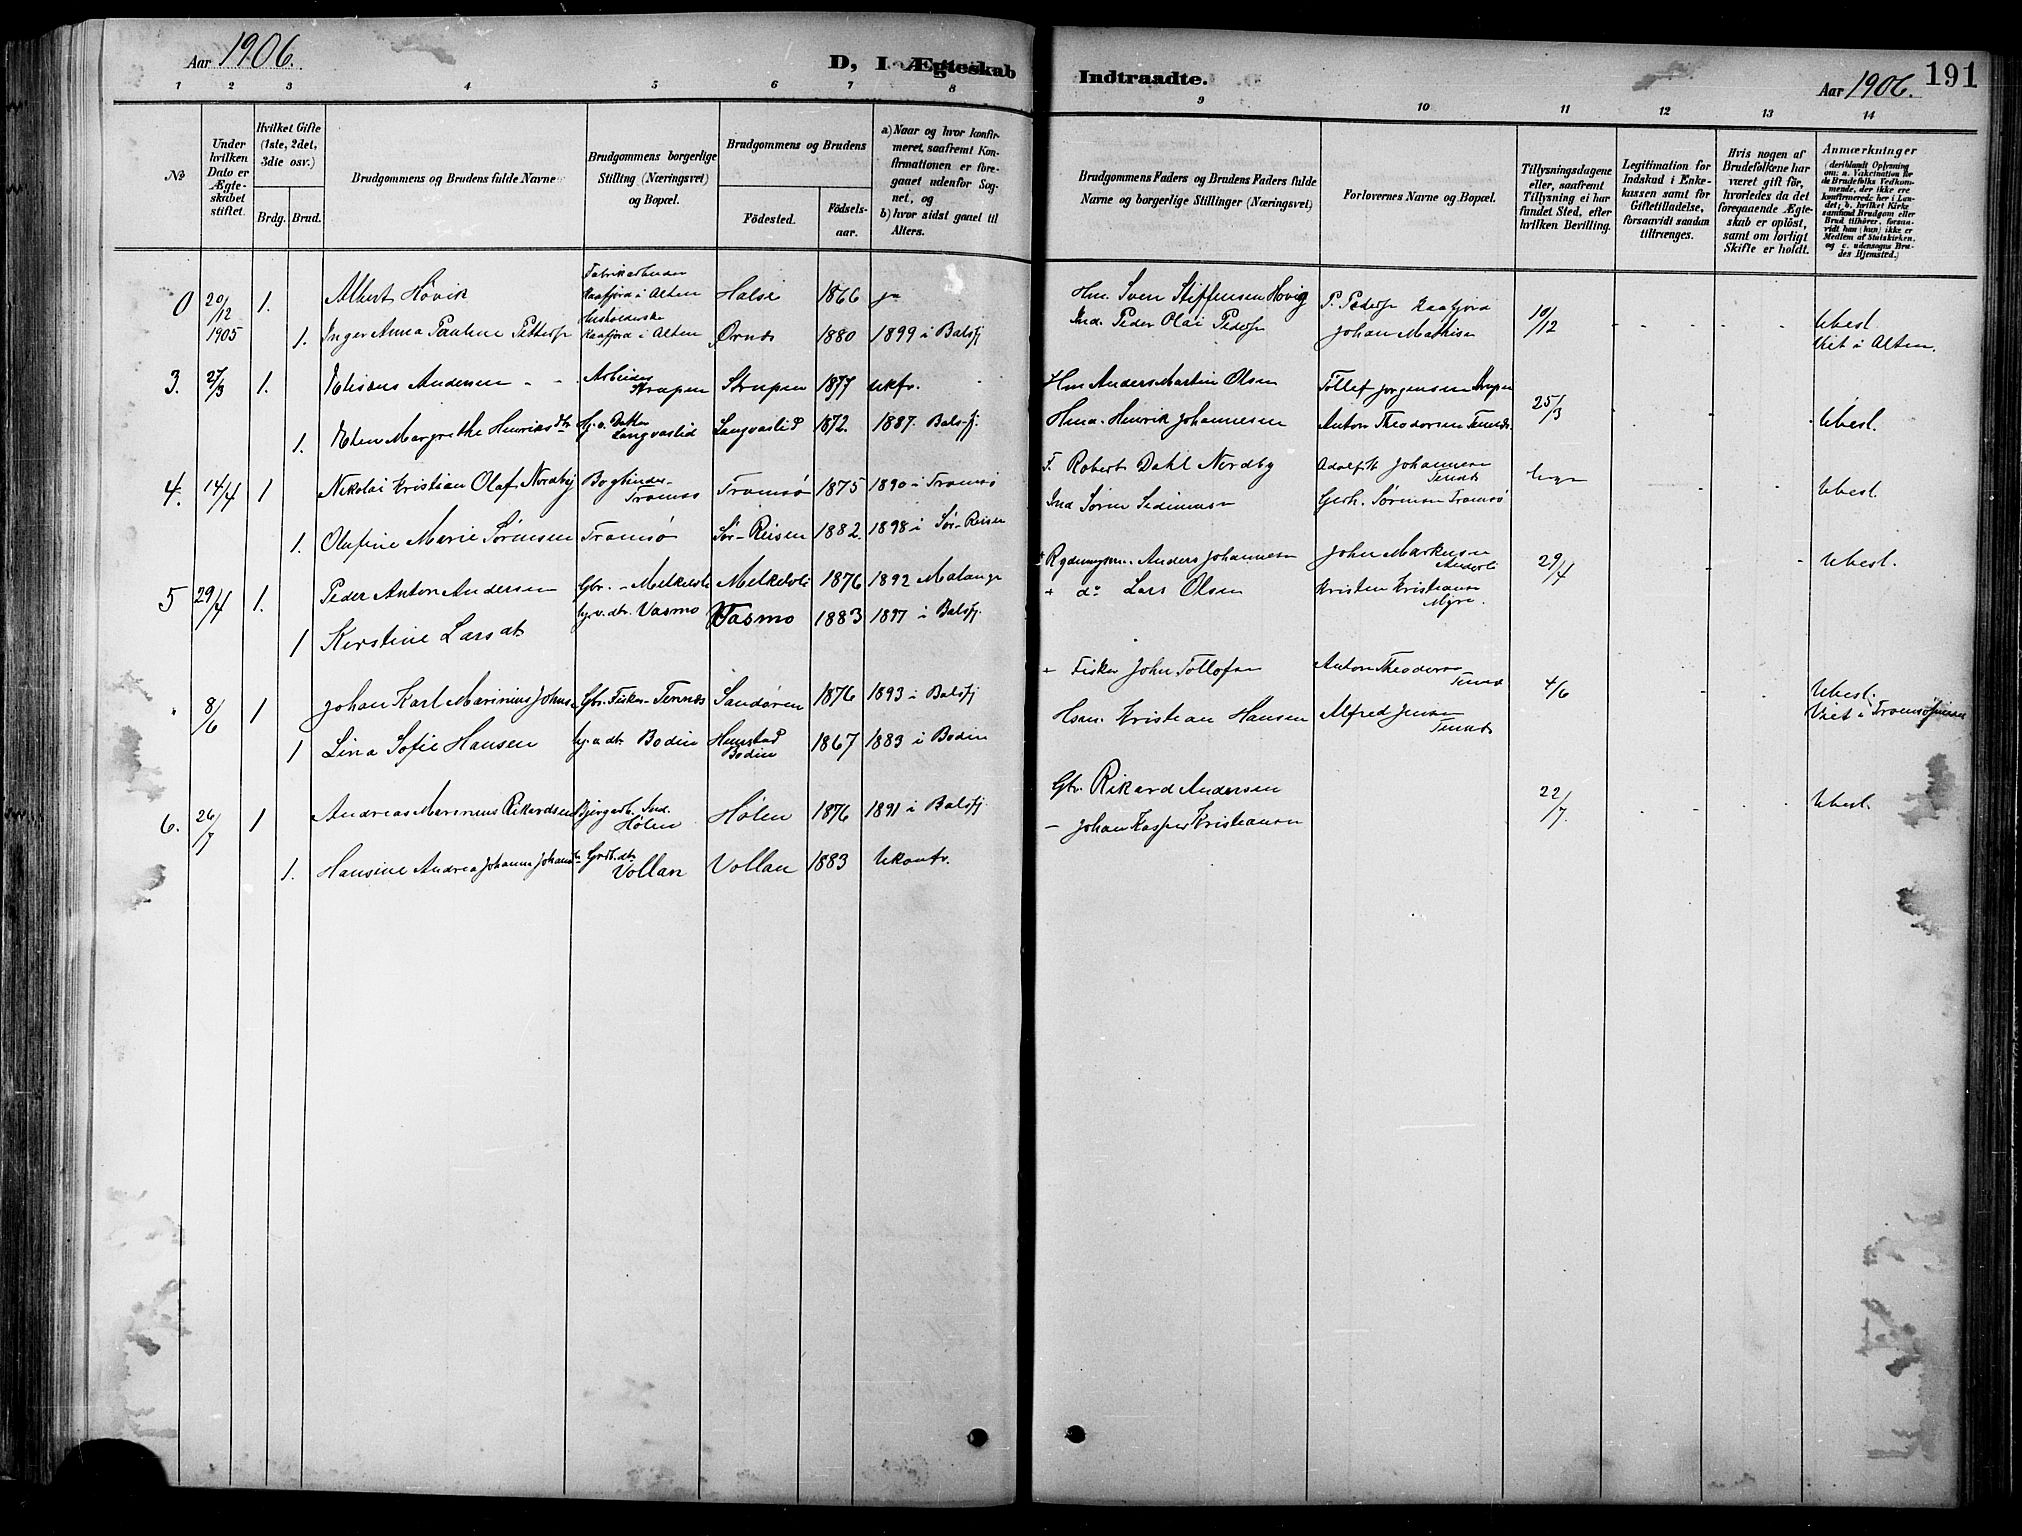 Aar 1906.
D, I Ægteskab
Indtraadte.
Aar 1906.
191
1 2 3 4 5 6 7 8 9 10 11 12 13 14
No
Under hvilken Dato er Ægteskabet stiftet.
Hvilket Gifte (1ste, 2det, 3die osv.)
Brdg. Brud.
Brudgommens og Brudens fulde Navne
Brudgommens borgerlige Stilling (Næringsvei) og Bopæl.
Brudgommens og Brudens
Födested.
Födselsaar.
a) Naar og hvor konfirmeret, saafremt Konfirmationen er foregaaet udenfor Sognet, og
b) hvor sidst gaaet til Alters.
Brudgommens Faders og Brudens Faders fulde Navne og borgerlige Stillinger (Næringsvei)
Forlovernes Navne og Bopæl.
Tillysningsdagene eller, saafremt Tillysning ei har fundet Sted, efter hvilken Bevilling.
Legitimation for Indskud i Enkekassen samt for Giftetilladelse, forsaavidt saadan tiltrænges.
Hvis nogen af Brudefolkene har været gift för, hvorledes da det foregaaende Ægteskab er oplöst, samt om lovligt Skifte er holdt.
Anmærkninger (deriblandt Oplysning om: a. Vakcination for de Brudefolks Vedkommende, der ikke ere konfirmerede her i Landet; b. hvilket Kirkesamfund Brudgom eller Brud tilhörer, forsaavidt han (hun) ikke er Medlem af Statskirken, og c. udensogns Brudes Hjemsted.)
0 20/12 1905 1. Albert Høvik Fabrikarbeider Kaafjord i Alten Halse 1866 ja Hm. Sven Steffensen Hovig P. Pedersen Kaafjord 10/12
1. Inger Anna Pauline Pettersen Husholderske Kaafjord i Alten Ørnes 1880 1899 i Balsfj Ind. Peder Olai Peders Johan Mathisen Ubesl. Viet i Alten.
3. 27/3 1. Elisæus Andersen Arbeider Strupen Strupen 1877 ukfv. Hm Anders Martin Olsen Tollef Jørgensen Strupen 25/3
1. Elen Margrethe Henriksdtr Langvaslid Langvaslid 1872. 1887. Balsfj. Hmd. Henrik Johannesen Anton Theodorsen Tennes. Ubesl.
4. 14/4 1 Nikolai Kristian Olaf Nordby Bogbinder Tromsø Tromsø 1875 1890 i Tromsø F. Robert Dahl Nordby Adolf H Johannesen Tennes
1. Olufine Marie Sørensen Tromsø Sør-Reisen 1882. 1898 i Sør-Reisen Ind Søren Gerh. Sørensen Tromsø Ubesl.
5 29/4 1. Peder Anton Andersen Gbr. Melkelv 1876 1892 Malange Rydningsm. Anders Johannesen John Markusen 29/4 Ubesl.
1 Kirstine Larsdt hj.v.dtr. Vasmo Vasmo 1883 1897 i Balsfj. + do Lars Olsen Kristen Kristiansen Myre.
" 8/6 1 Johan Karl Marinius Johns Gbr. Fisker Tennes Sandøren 1876 1893 i Balsfj + Fisker John Tollefsen Anton Theodorsen Tennes 4/6 Ubesl. Viet i
1 Lina Sofie Hansen hj.v.dtr. Bodin Bodin 1867 1883 i Bodin Hsm. Kristian Hansen Alfred Jensen Tennes
6. 26/7 1 Andreas Marinius Rikardsen Hølen Hølen 1876 1891 i Balsfj Gbr. Rikard Andersen 22/7. Ubesl.
1. Hansine Andrea Johanna Johans Grdb.dtr Vollan Vollan 1883 Ukonfv. - Johan Kasper Kristiansen